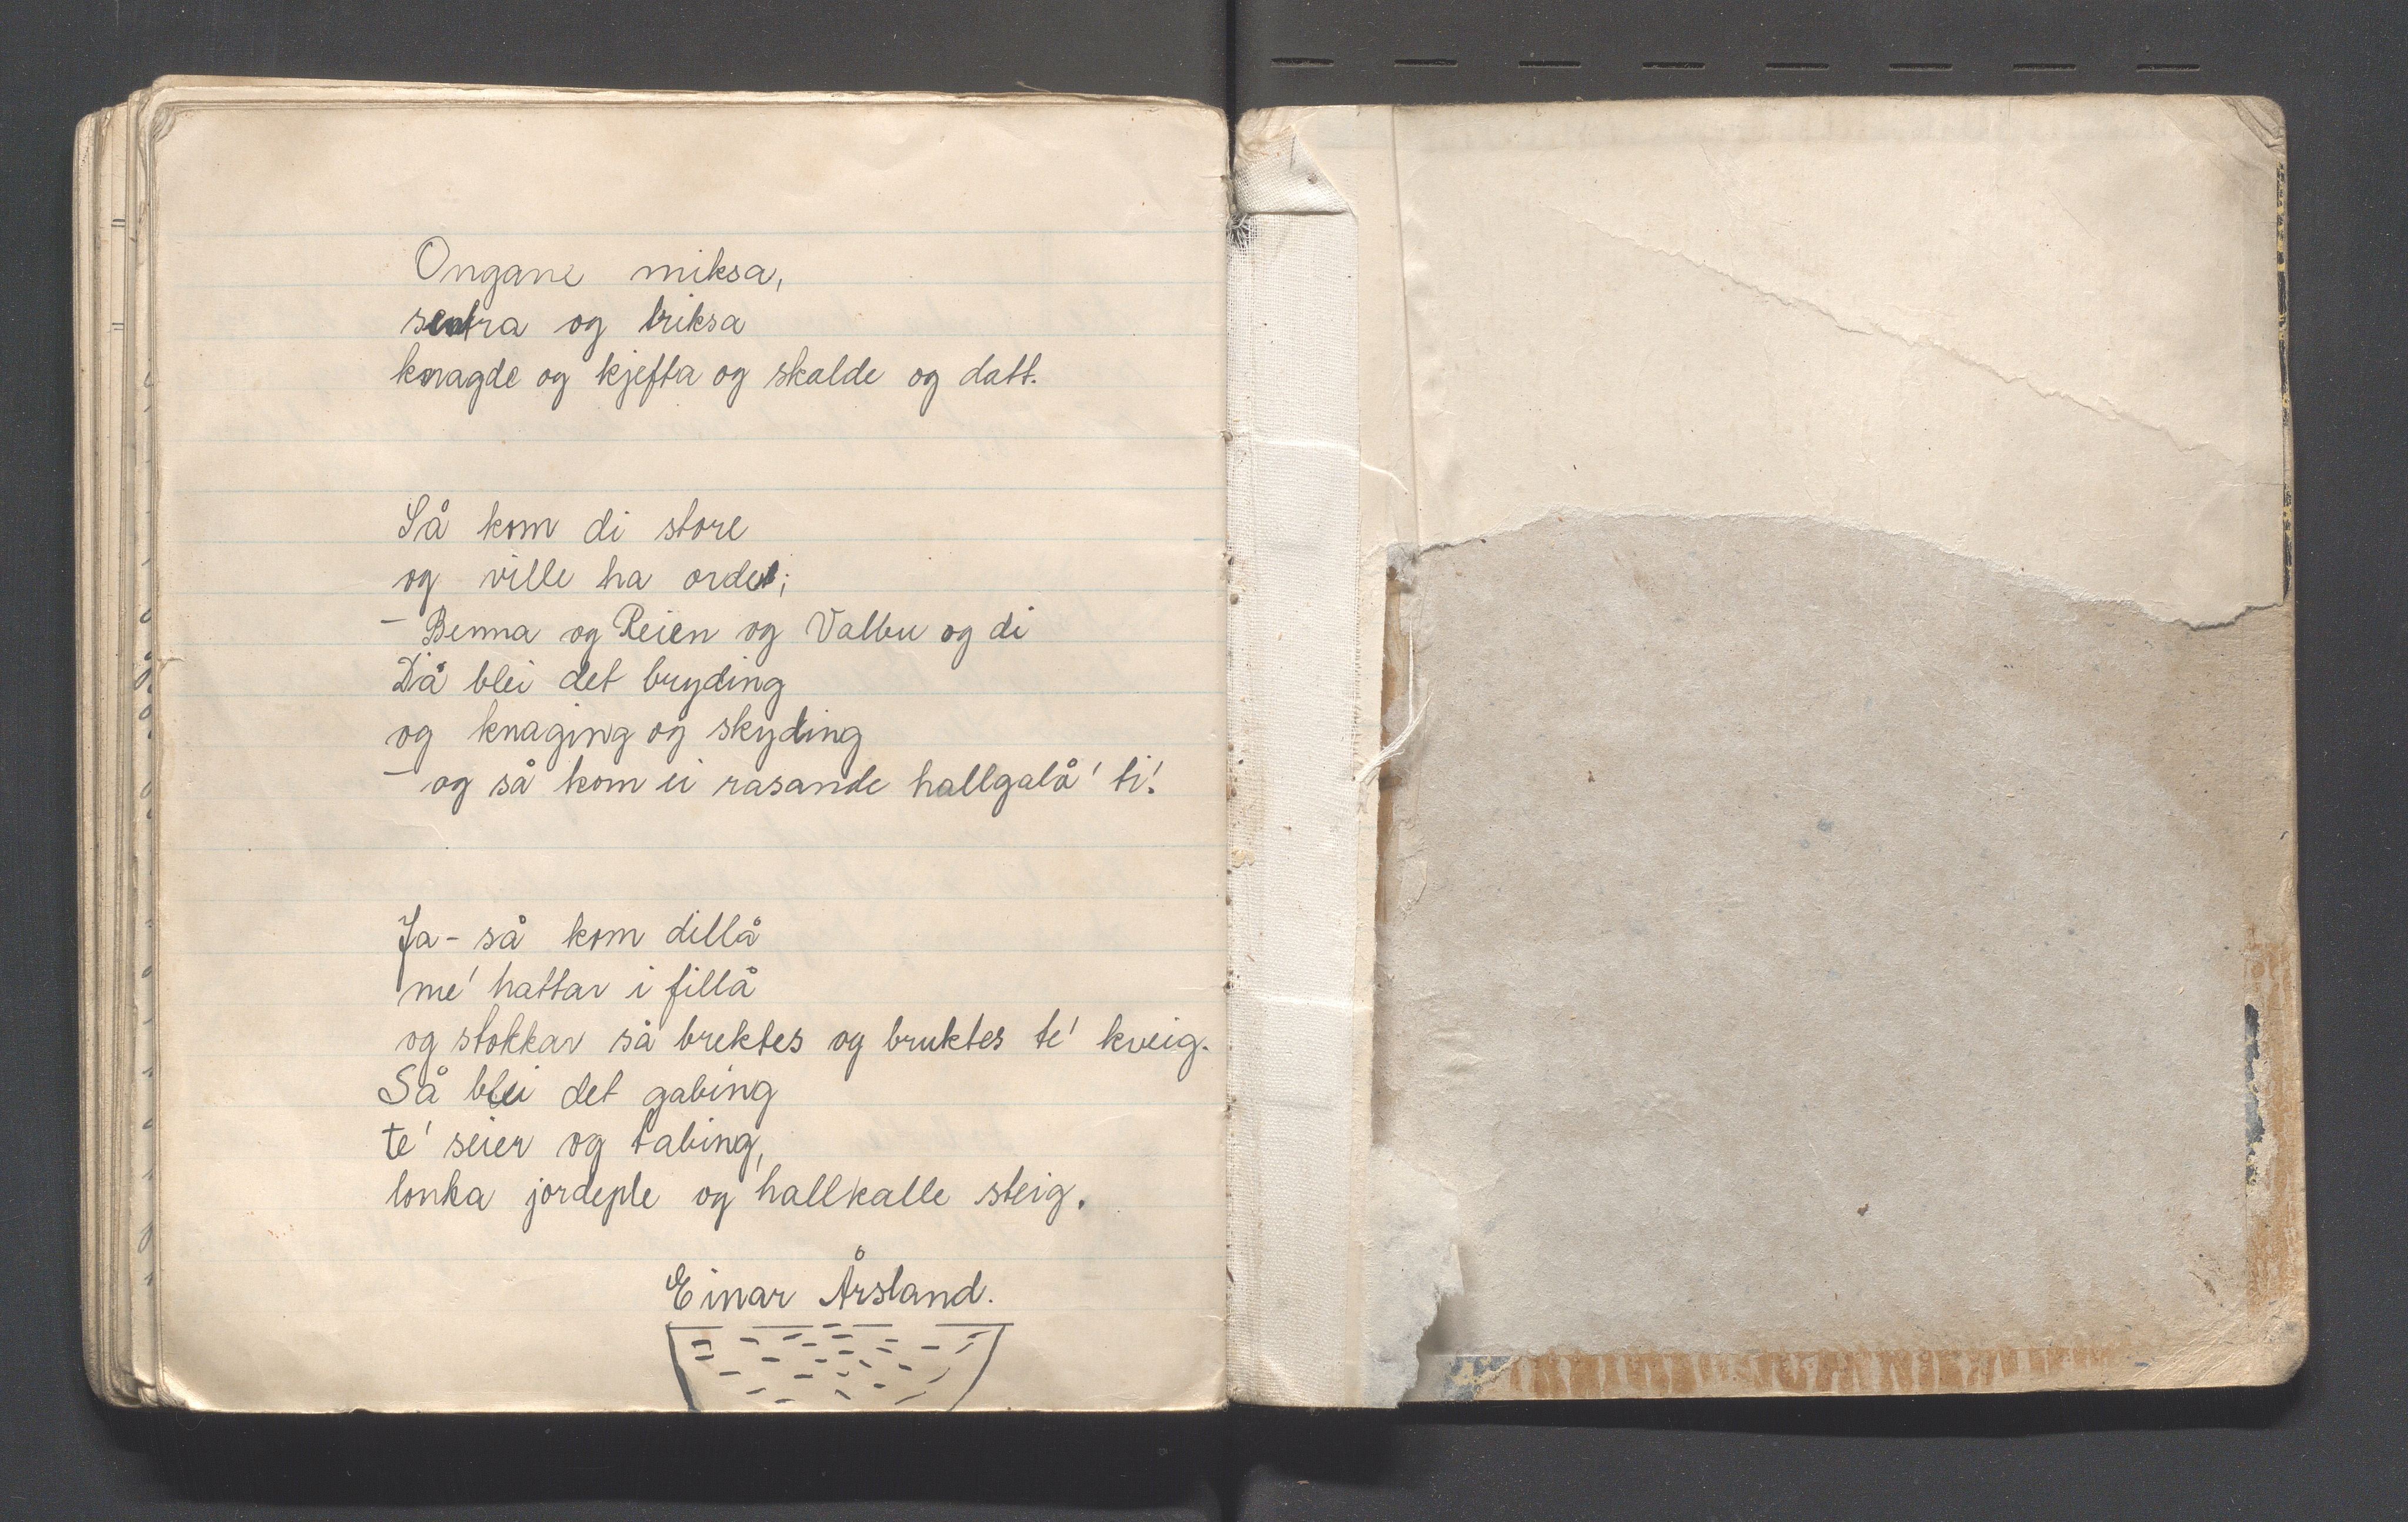 Ongane miksa,
og briksa
knagde og kjefta og skalde og datt.
Så kom di store
og ville ha ordet;
- Benna og Reien og Valbu og di
Då blei det bryding
og knaging og skyding
- og så kom ei rasande hallgalå' ti!
Ja - så kom dillå
me' hattar i fillå
og stokkar så brektes og bruktes te' kveig.
Så blei det gabing
te' seier og tabing,
lonka jordeple og hallkalle steig.
Einar Årsland.